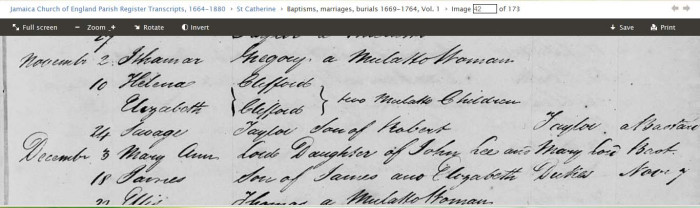 Jamaica Church of England Parish Register Transcripts, 1664–1880 › St Catherine › Baptisms, marriages, burials 1669–1764, Vol. 1 › Image 42 of 173
Full screen − Zoom + Rotate Invert Save Print
Novembr 2. Ithamar Gregory. a Mulatto Woman
10 Helena Clifford
Elizabeth Clifford } two Mulatto Children
24 Savage Taylor Son of Robert Taylor. a Bastard
Decembr. 3 Mary Ann Daughter of John Lee and Mary Bast.
18 James Son of James and Elizabeth
21 Thomas a Mulatto Woman